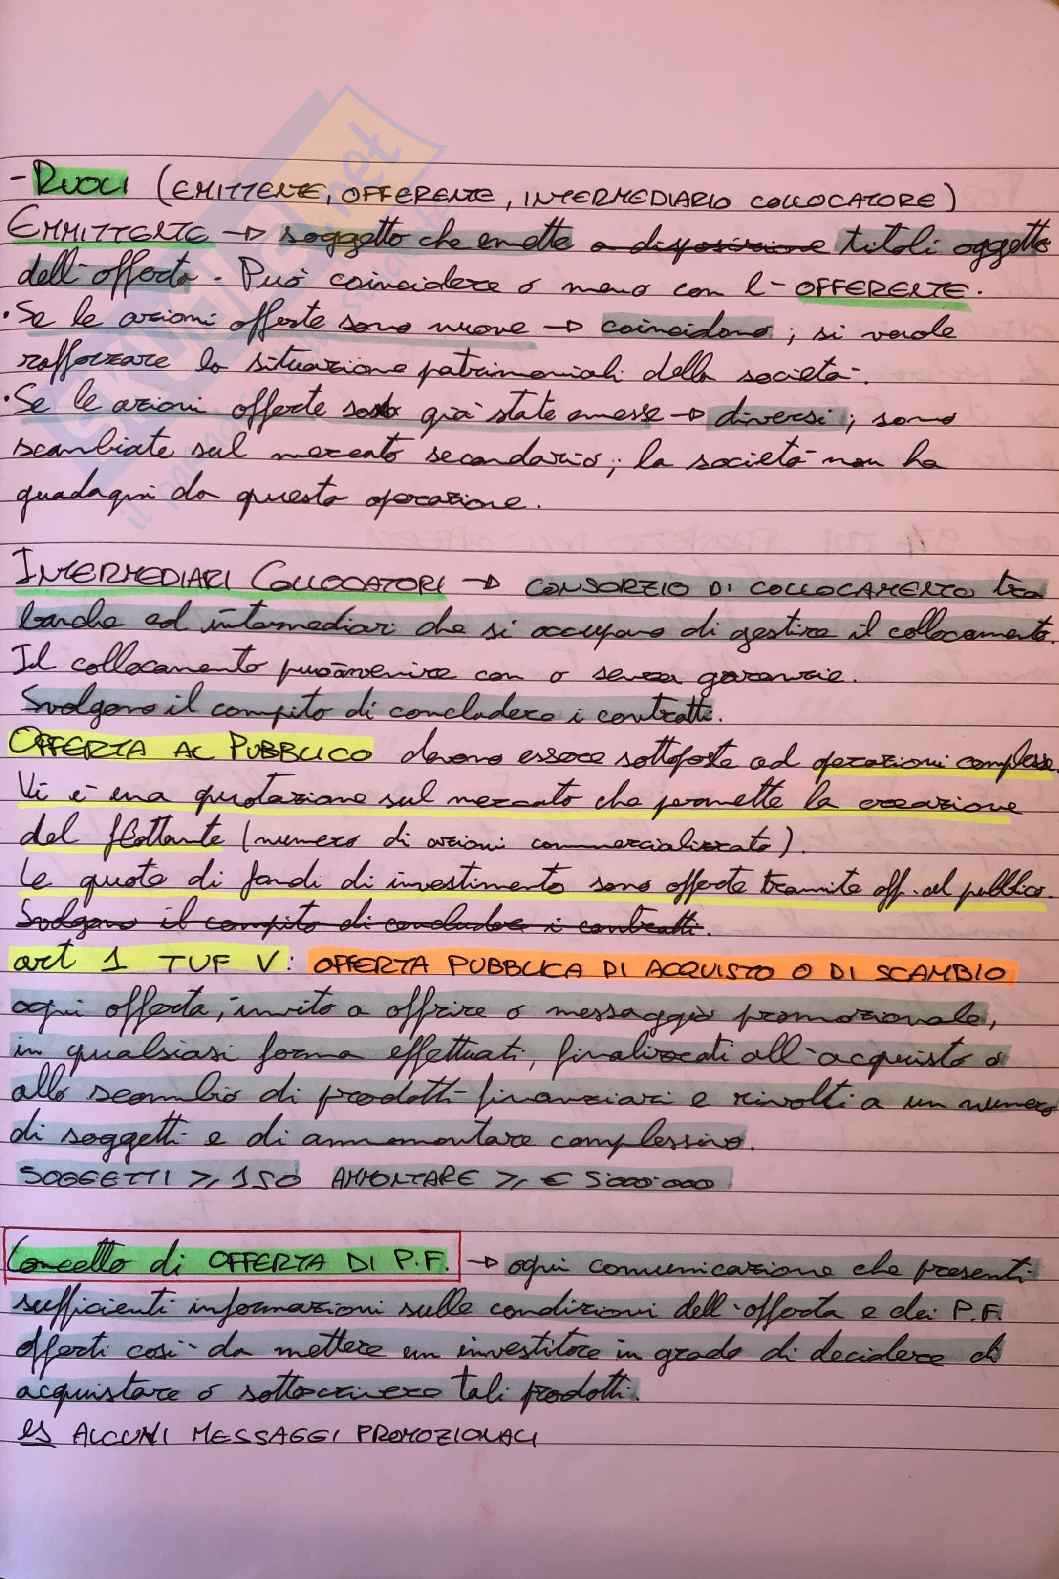 - RUOLI (EMITTENTE, OFFERENTE, INTERMEDIARIO COLLOCATORE)
EMMITTENTE → soggetto che emette a disposizione titoli oggetto
dell'offerta. Può coincidere o meno con l'OFFERENTE.
• Se le azioni offerte sono nuove → coincidono; si vuole
rafforzare la situazione patrimoniali della società.
• Se le azioni offerte sono già state emesse → diversi; sono
scambiate sul mercato secondario; la società non ha
guadagni da questa operazione.
INTERMEDIARI COLLOCATORI → CONSORZIO DI COLLOCAMENTO tra
banche ed intermediari che si occupano di gestire il collocamento.
Il collocamento può avvenire con o senza garanzie.
Svolgono il compito di concludere i contratti.
OFFERTA AL PUBBLICO devono essere sottoposte ad operazioni complesse.
Vi è una quotazione sul mercato che permette la creazione
del flottante (numero di azioni commercializzate).
Le quote di fondi di investimento sono offerte tramite off. al pubblico.
Svolgono il compito di concludere i contratti.
art 1 TUF V: OFFERTA PUBBLICA DI ACQUISTO O DI SCAMBIO
ogni offerta, invito a offrire o messaggio promozionale,
in qualsiasi forma effettuati, finalizzati all'acquisto o
allo scambio di prodotti finanziari e rivolti a un numero
di soggetti e di ammontare complessivo.
SOGGETTI ≥ 150 AMMONTARE ≥ € 5'000.000
Concetto di OFFERTA DI P.F. → ogni comunicazione che presenti
sufficienti informazioni sulle condizioni dell'offerta e dei P.F.
offerti così da mettere un investitore in grado di decidere di
acquistare o sottoscrivere tali prodotti.
es ALCUNI MESSAGGI PROMOZIONALI